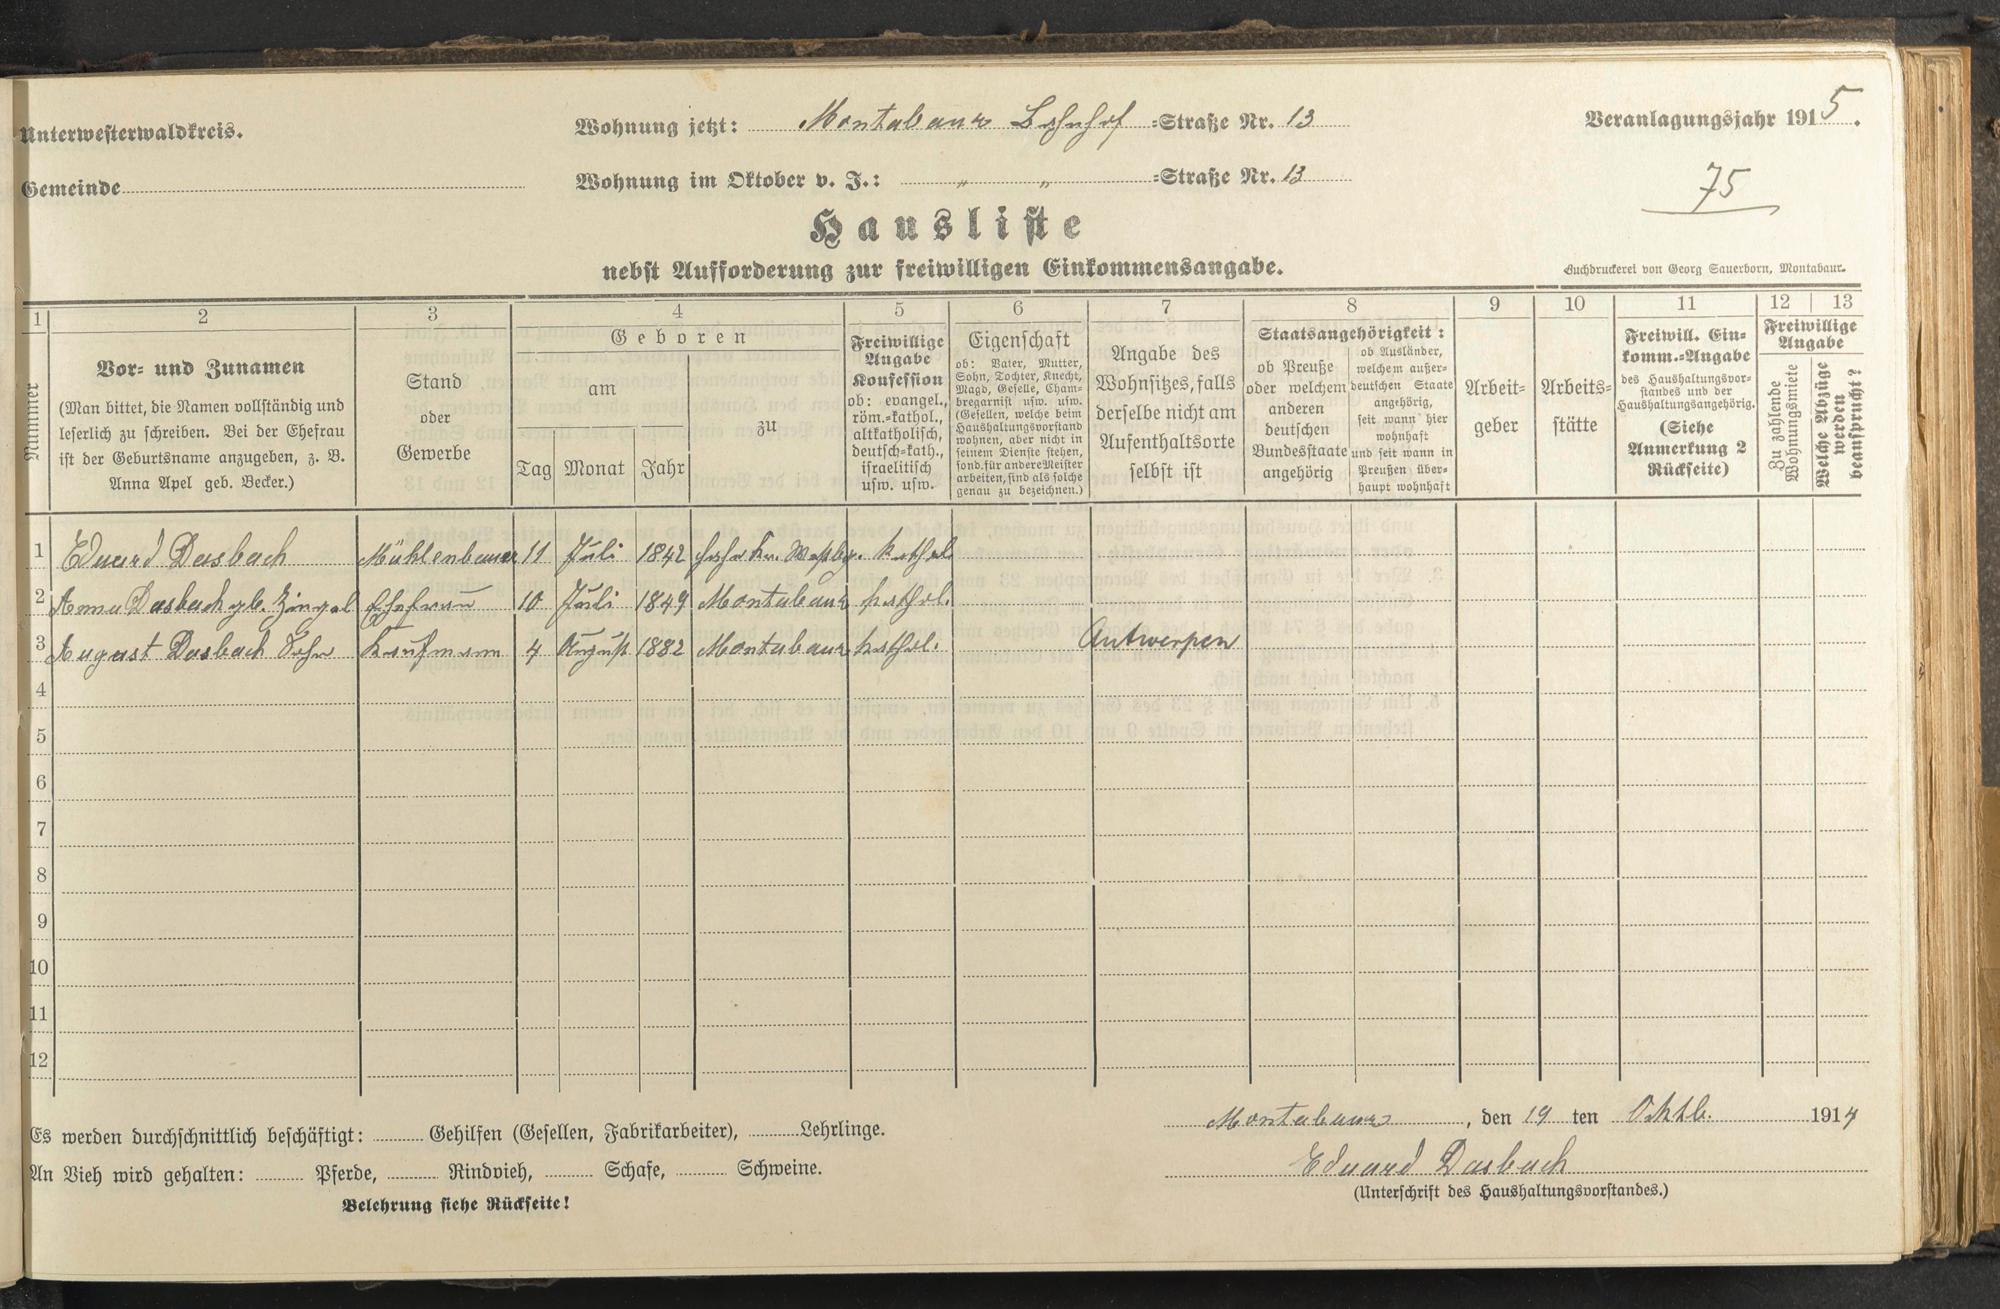 Unterwesterwaldkreis.
Wohnung jetzt: Montabaur Bahnhof =Straße Nr. 13
Veranlagungsjahr 1915.
Gemeinde
Wohnung im Oktober v. J.: " " =Straße Nr. 13
75
Hausliste
nebst Aufforderung zur freiwilligen Einkommensangabe.
Buchdruckerei von Georg Sauerborn, Montabaur.
1 2 3 4 5 6 7 8 9 10 11 12 13
Nummer
Vor- und Zunamen
(Man bittet, die Namen vollständig und
leserlich zu schreiben. Bei der Ehefrau
ist der Geburtsname anzugeben, z. B.
Anna Apel geb. Becker.)
Stand
oder
Gewerbe
Geboren
am
Tag Monat Jahr
zu
Freiwillige
Angabe
Konfession
ob: evangel.,
röm.-kathol.,
altkatholisch,
deutsch-kath.,
israelitisch
usw. usw.
Eigenschaft
ob: Vater, Mutter,
Sohn, Tochter, Knecht,
Magd, Geselle, Cham-
bregarnist usw. usw.
(Gesellen, welche beim
Haushaltungsvorstand
wohnen, aber nicht in
seinem Dienste stehen,
sond. für andere Meister
arbeiten, sind als solche
genau zu bezeichnen.)
Angabe des
Wohnsitzes, falls
derselbe nicht am
Aufenthaltsorte
selbst ist
Staatsangehörigkeit:
ob Preuße
oder welchem
anderen
deutschen
Bundesstaate
angehörig
ob Ausländer,
welchem außer-
deutschen Staate
angehörig,
seit wann hier
wohnhaft
und seit wann in
Preußen über-
haupt wohnhaft
Arbeit-
geber
Arbeits-
stätte
Freiwill. Ein-
komm.-Angabe
des Haushaltungsvor-
standes und der
Haushaltungsangehörig.
(Siehe
Anmerkung 2
Rückseite)
Freiwillige
Angabe
Zu zahlende
Wohnungsmiete
Welche Abzüge
werden
beansprucht?
1 Eduard Dasbach Mühlenbauer 11 Juli 1842 kathol.
2 Anna Dasbach gb. Zingel Ehefrau 10 Juli 1849 Montabaur kathol.
3 August Dasbach Sohn Kaufmann 4 August 1882 Montabaur kathol. Antwerpen
4
5
6
7
8
9
10
11
12
Es werden durchschnittlich beschäftigt: Gehilfen (Gesellen, Fabrikarbeiter), Lehrlinge.
An Vieh wird gehalten: Pferde, Rindvieh, Schafe, Schweine.
Belehrung siehe Rückseite!
Montabaur, den 19 ten Oktb. 1914
Eduard Dasbach
(Unterschrift des Haushaltungsvorstandes.)